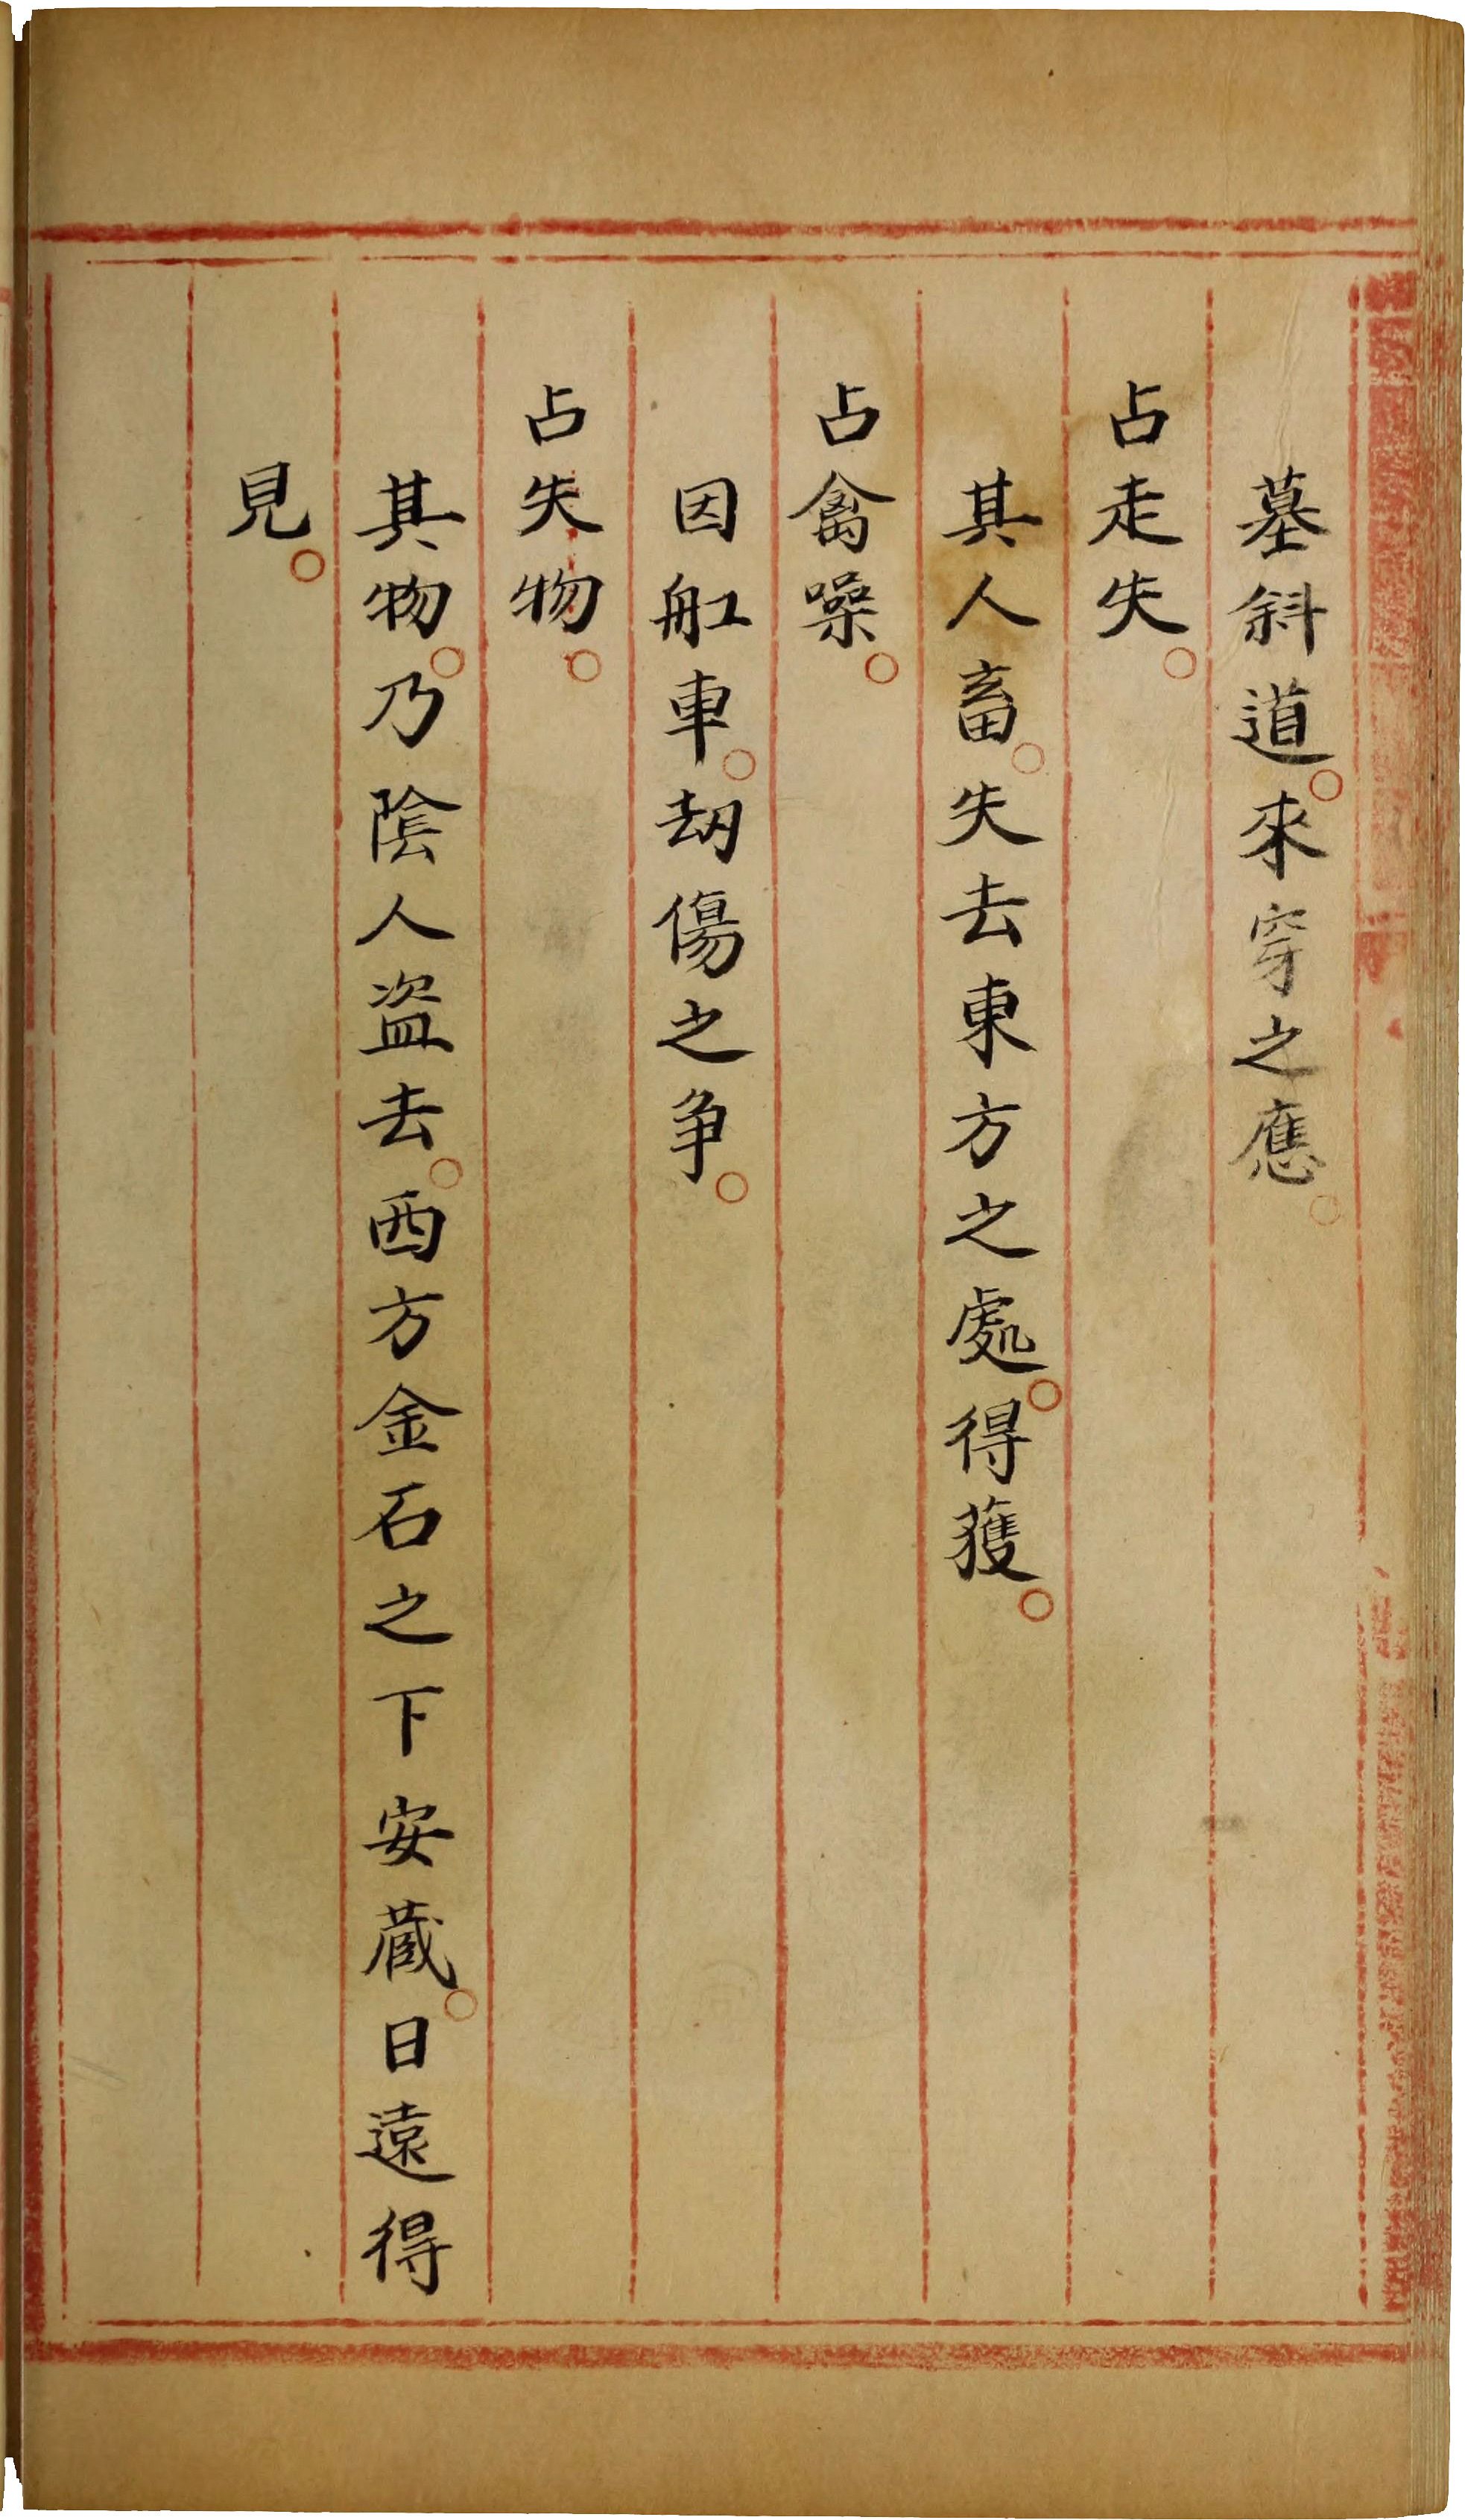 墓斜道。來穿之應。
占走失。
其人畜。失去東方之處。得獲。
占禽噪。
因舡車。刼傷之争。
占失物。
其物。乃陰人盗去。西方金石之下安蔵。日遠得
見。